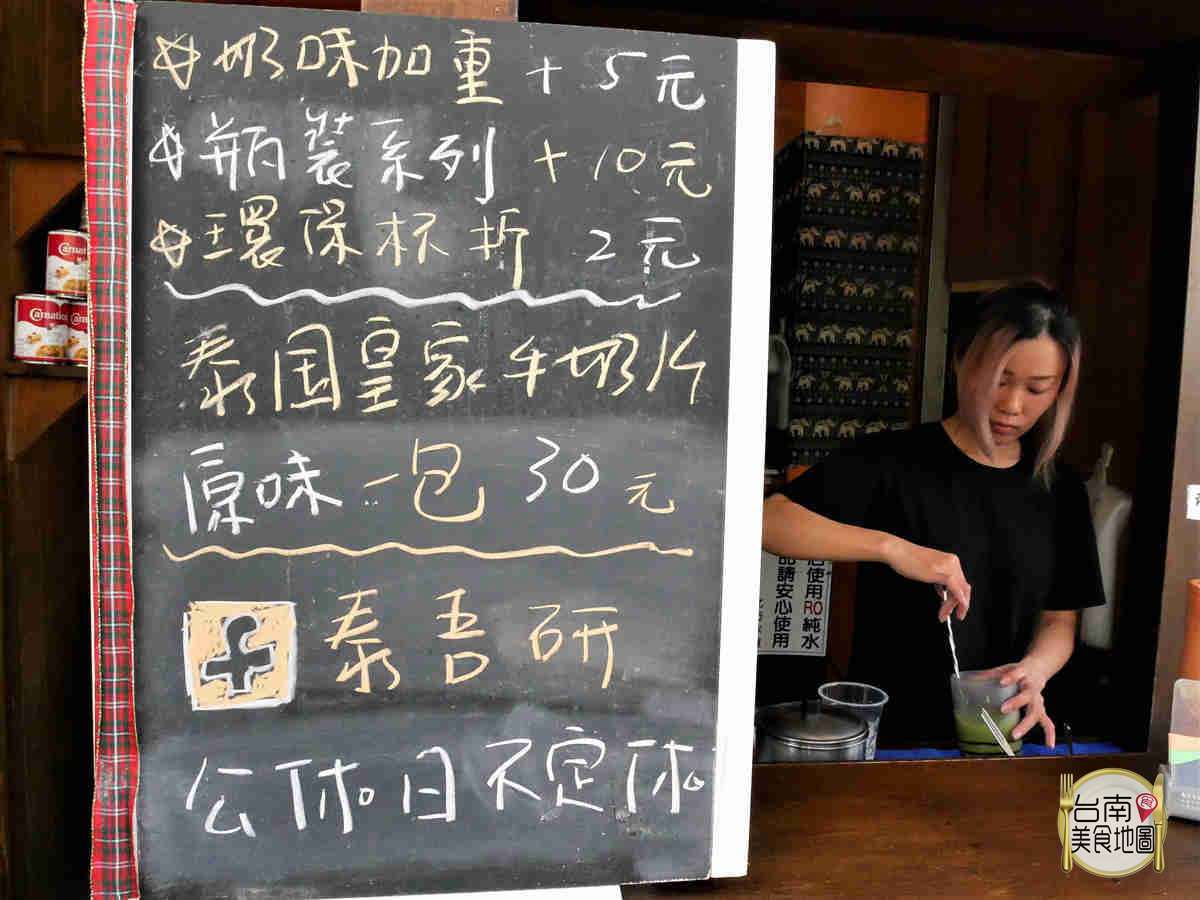 ☆奶味加重+5元
☆瓶裝系列+10元
☆環保杯折2元
泰国皇家牛奶片
原味一包30元
泰吾研
公休日不定休
Carnation
使用RO純水
品請安心使用
台南
美食地圖